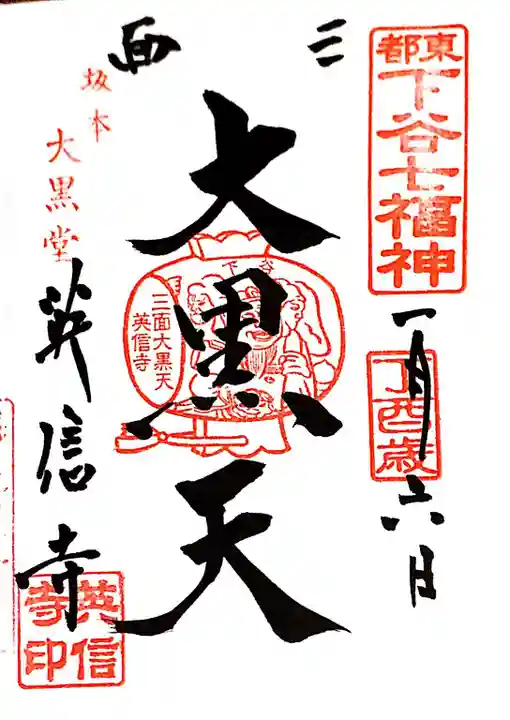 東都
下谷七福神
丁酉歳
一月六日
三面
大黒天
下谷
三面大黒天
英信寺
坂本
大黒堂
英信寺
英信寺印